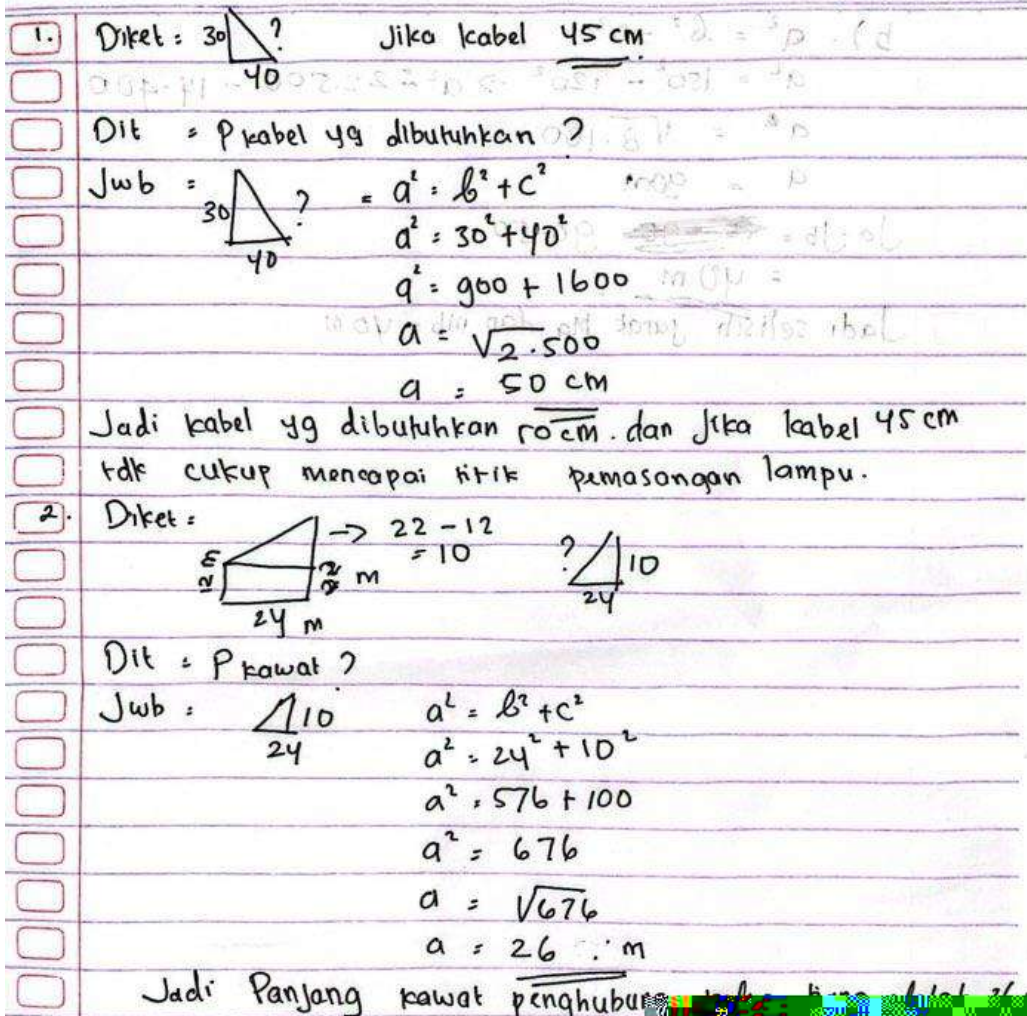 1. Diket : 30 ? Jika kabel 45 cm.
40
Dit : P kabel yg dibutuhkan ?
Jwb : 30 ? = a² = b² + c²
40
a² = 30² + 40²
a² = 900 + 1600
a = √2.500
a = 50 cm
Jadi kabel yg dibutuhkan 50 cm. dan Jika kabel 45 cm
tdk cukup mencapai titik pemasangan lampu.
2. Diket :
12 → 22 - 12
= 10
22 m
24 m
? 10
24
Dit : P kawat ?
Jwb : 10 a² = b² + c²
24
a² = 24² + 10²
a² = 576 + 100
a² = 676
a = √676
a = 26 m
Jadi Panjang kawat penghubung